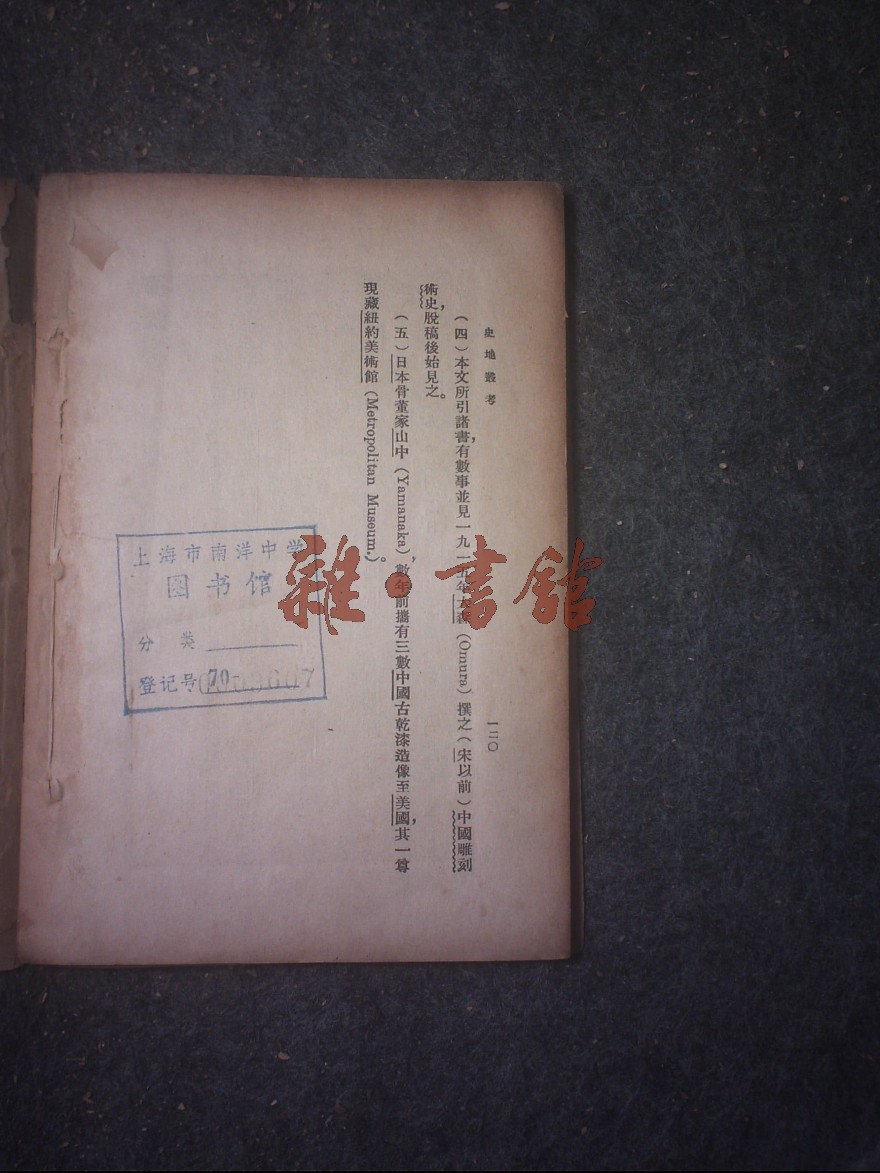 史地叢考
一二〇
（四）本文所引諸書，有數事並見一九一五年大村（Omura）撰之（宋以前）中國雕刻
術史，脫稿後始見之。
（五）日本骨董家山中（Yamanaka），數年前攜有三數中國古乾漆造像至美國，其一尊
現藏紐約美術館（Metropolitan Museum.）。
上海市南洋中学
图书馆
分类
登记号
雜·書館